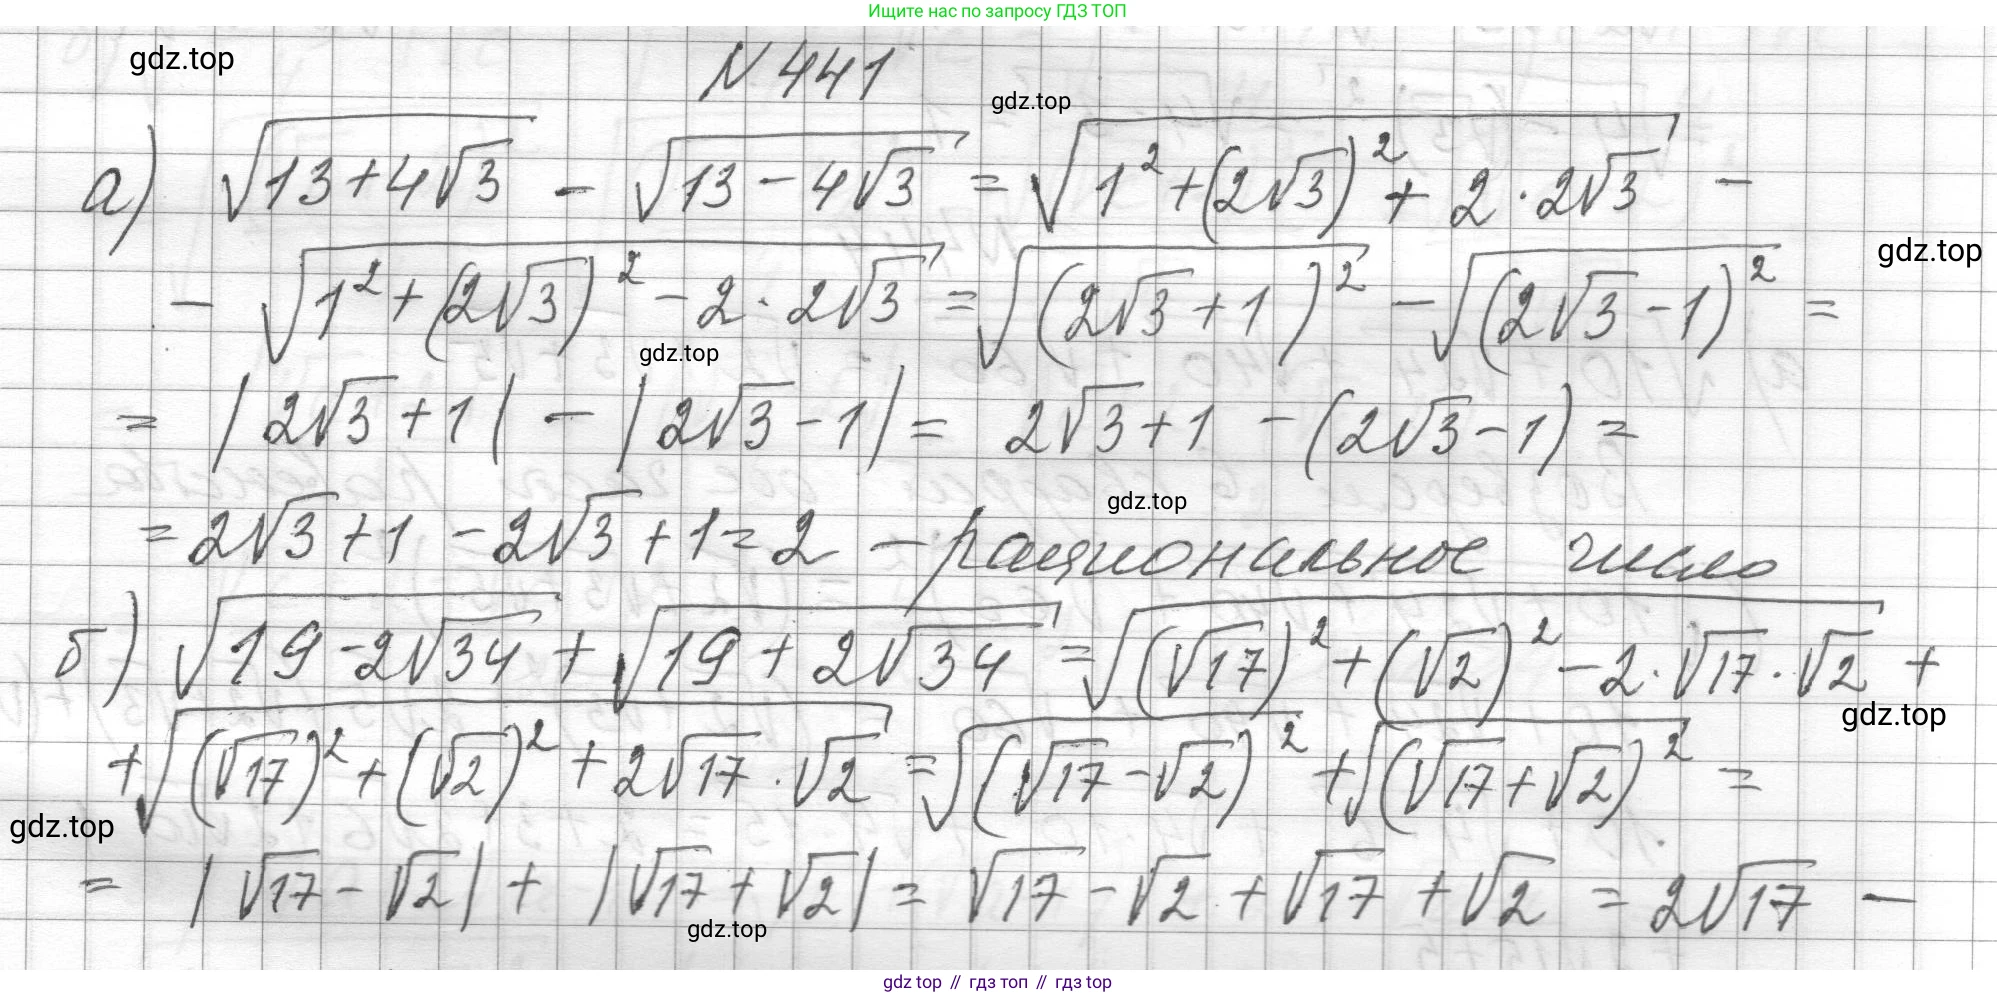 Ищите нас по запросу ГДЗ ТОП
gdz.top
N 441
gdz.top
а) √(13+4√3) - √(13-4√3) = √(1²+(2√3)²+2·2√3) -
gdz.top
- √(1²+(2√3)²-2·2√3) = √((2√3+1)²) - √((2√3-1)²) =
gdz.top
= |2√3+1| - |2√3-1| = 2√3+1 - (2√3-1) =
gdz.top
= 2√3+1 - 2√3+1 = 2 - рациональное число
б) √(19-2√34) + √(19+2√34) = √((√17)²+(√2)²-2·√17·√2) +
gdz.top
+ √((√17)²+(√2)²+2√17·√2) = √((√17-√2)²) + √((√17+√2)²) =
gdz.top
= |√17-√2| + |√17+√2| = √17-√2+√17+√2 = 2√17 -
gdz.top
gdz top // гдз топ // гдз top